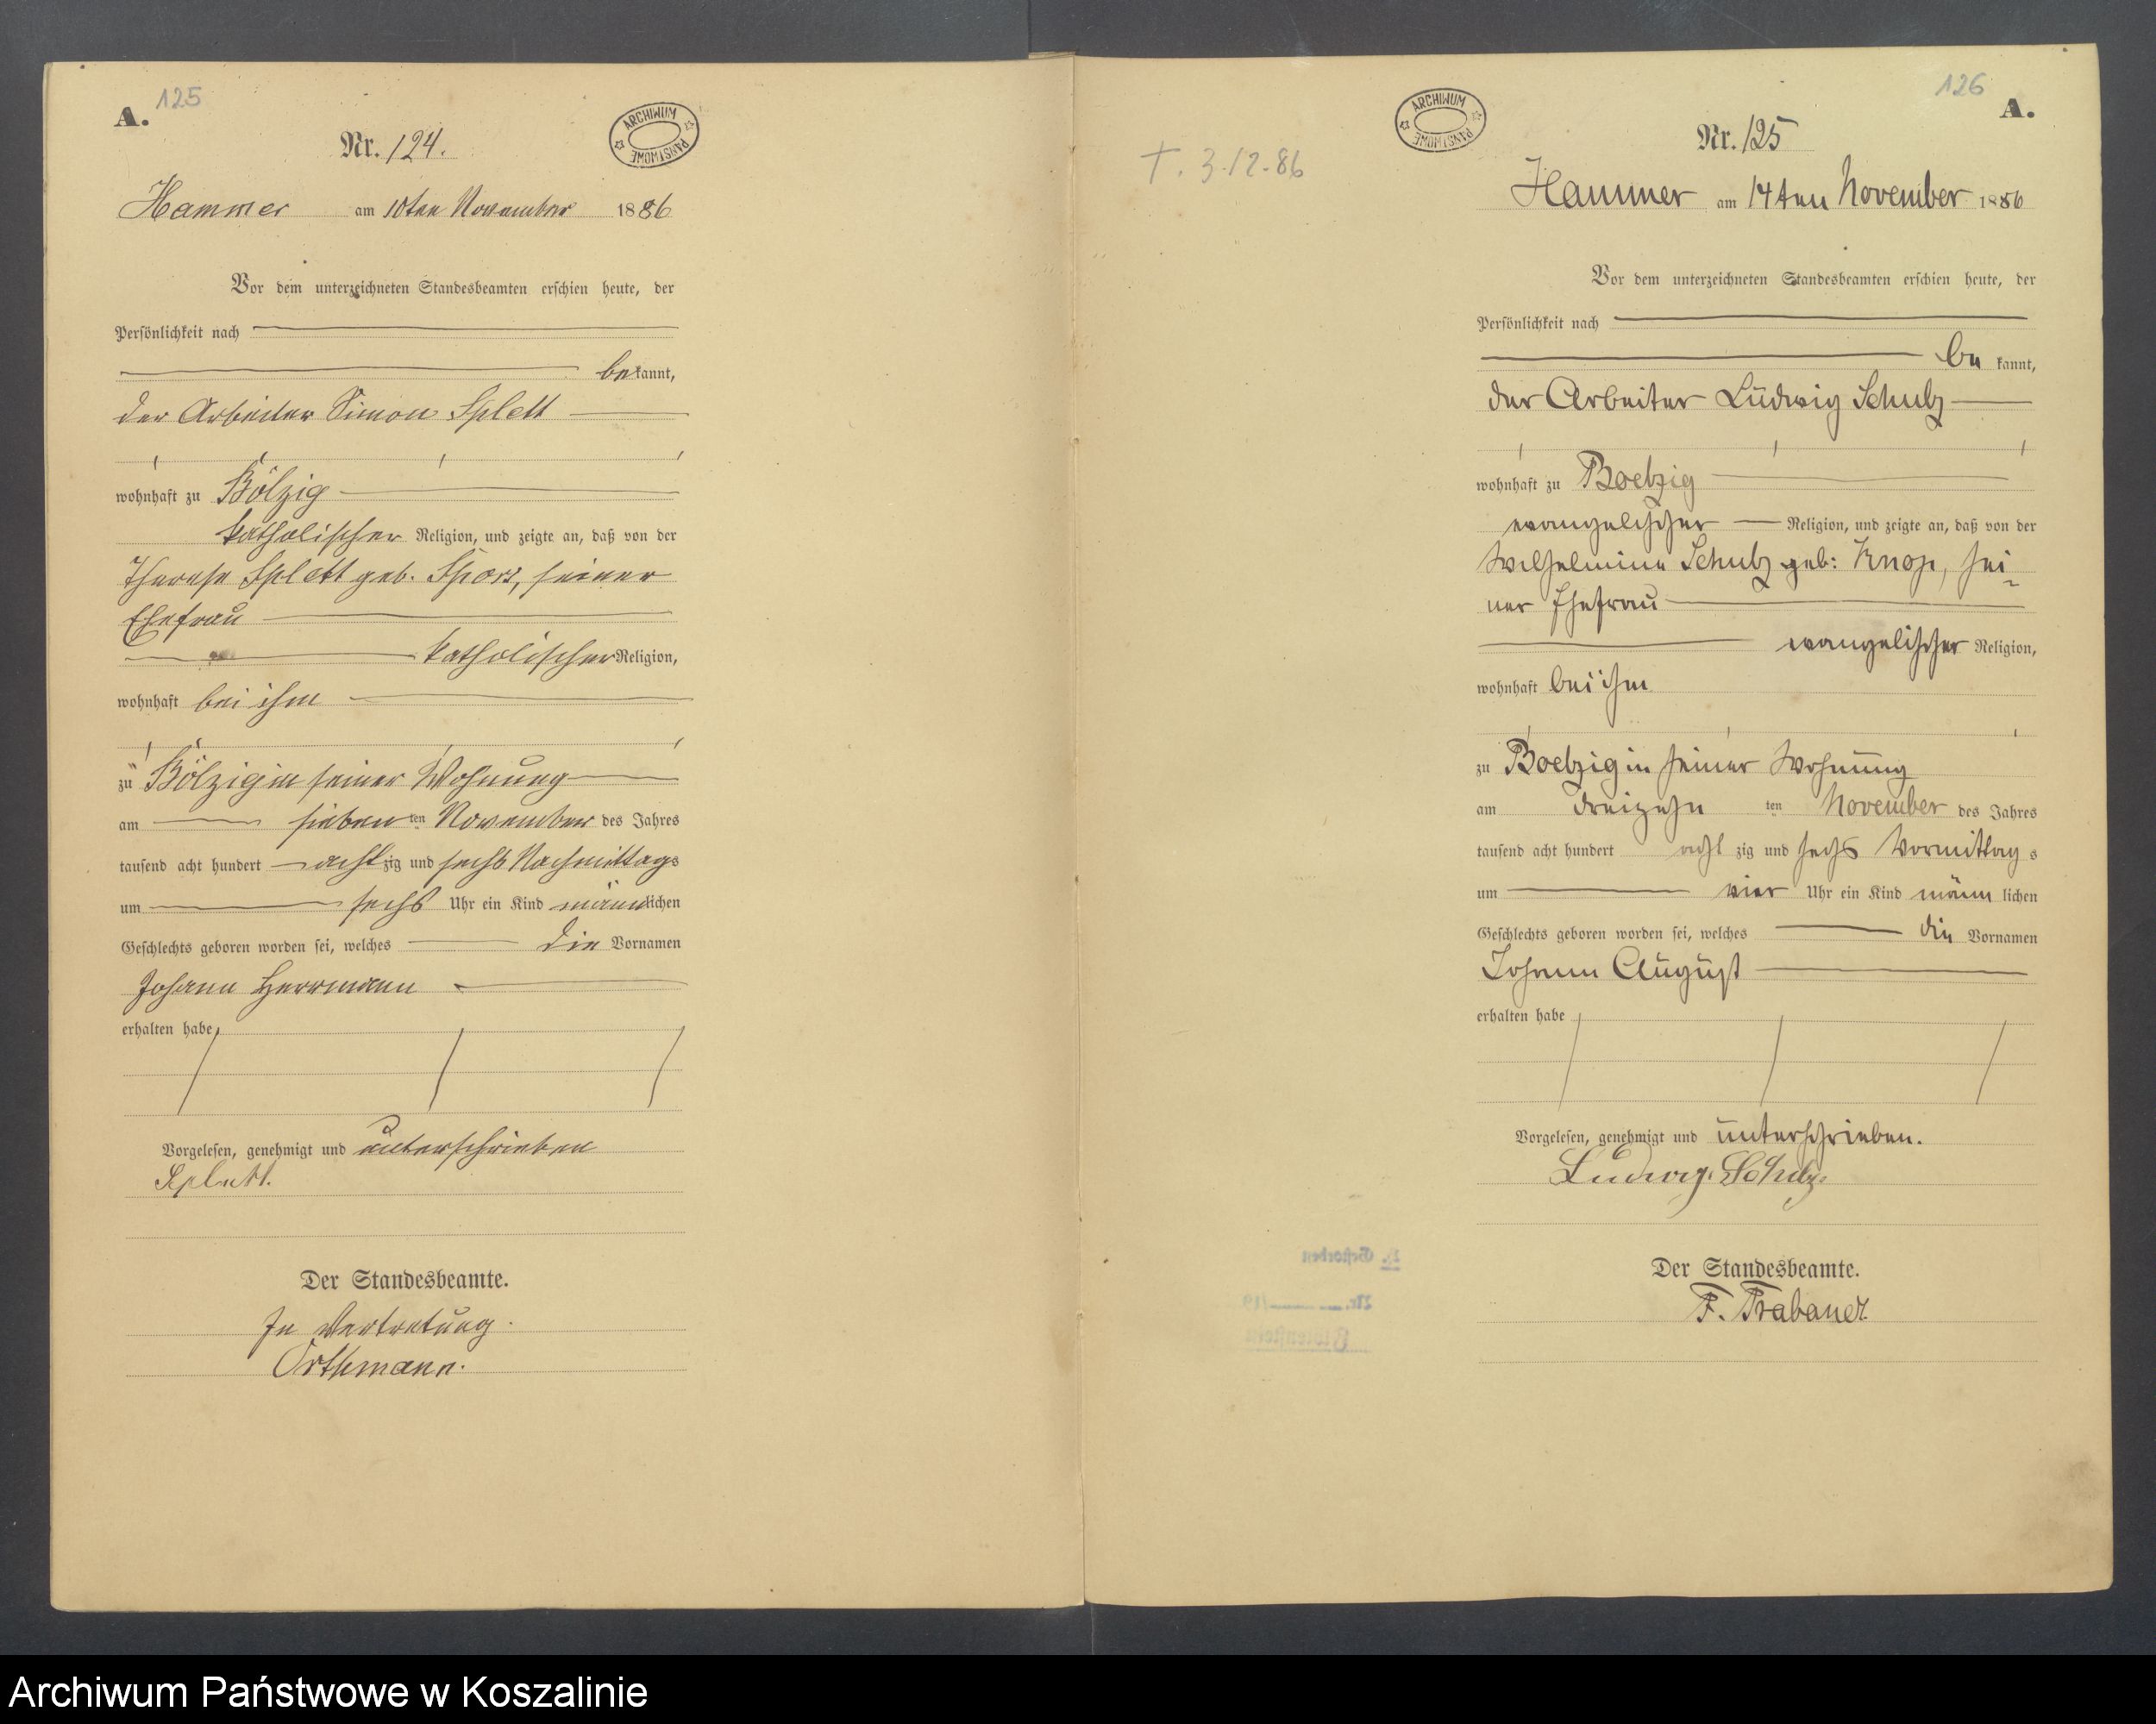 A. 125
ARCHIWUM PAŃSTWOWE
Nr. 124.
Hammer am 10ten November 1886
Vor dem unterzeichneten Standesbeamten erschien heute, der
Persönlichkeit nach
bekannt,
der Arbeiter Simon Splett
wohnhaft zu Bölzig
katholischer Religion, und zeigte an, daß von der
Therese Splett geb. Spors, seiner
Ehefrau
katholischer Religion,
wohnhaft bei ihm
zu Bölzig in seiner Wohnung
am sieben ten November des Jahres
tausend acht hundert achtzig und sechs Nachmittags
um sechs Uhr ein Kind männlichen
Geschlechts geboren worden sei, welches die Vornamen
Johann Herrmann
erhalten habe
Vorgelesen, genehmigt und unterschrieben
Splett.
Der Standesbeamte.
In Vertretung.
Orthmann.
126 A.
ARCHIWUM PAŃSTWOWE
Nr. 125
†. 3.12.86
Hammer am 14ten November 1886
Vor dem unterzeichneten Standesbeamten erschien heute, der
Persönlichkeit nach
be kannt,
der Arbeiter Ludwig Schulz
wohnhaft zu Boelzig
evangelischer Religion, und zeigte an, daß von der
Wilhelmine Schulz geb: Knop, sei-
ner Ehefrau
evangelischer Religion,
wohnhaft bei ihm
zu Boelzig in seiner Wohnung
am dreizehn ten November des Jahres
tausend acht hundert acht zig und sechs Vormittag s
um vier Uhr ein Kind männ lichen
Geschlechts geboren worden sei, welches die Vornamen
Johann August
erhalten habe
Vorgelesen, genehmigt und unterschrieben.
Ludwig Schulz.
Der Standesbeamte.
Archiwum Państwowe w Koszalinie